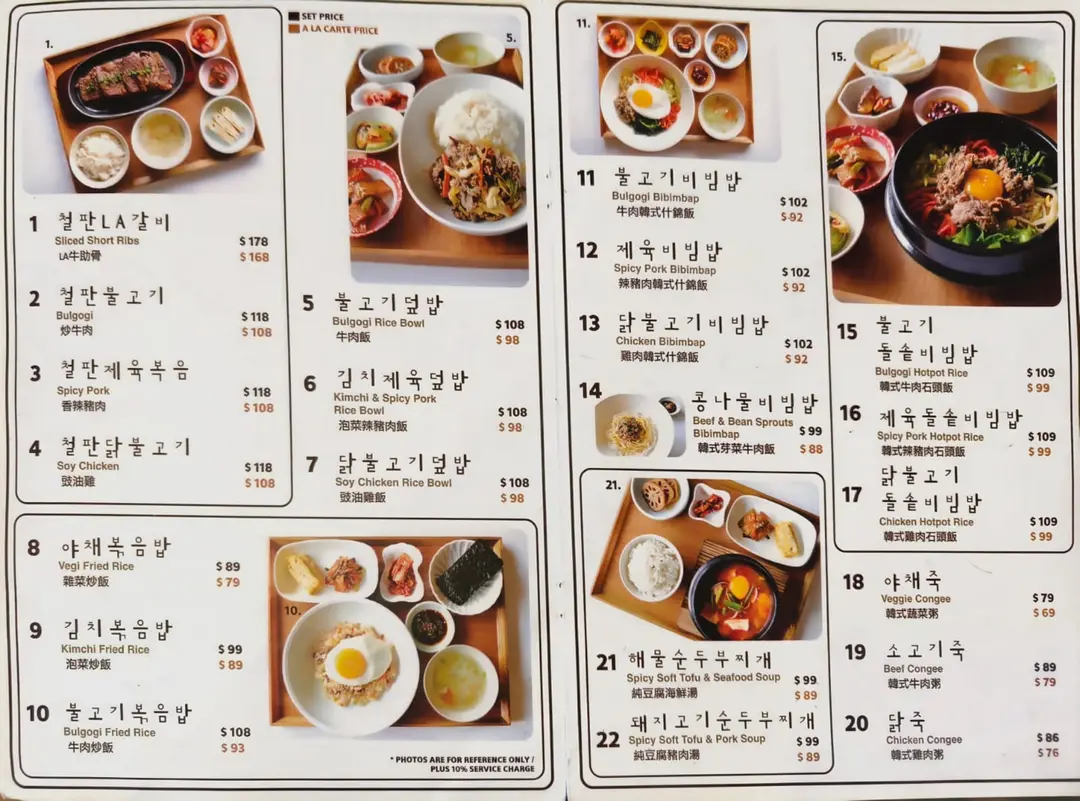 SET PRICE
A LA CARTE PRICE
1.
5.
1 철판LA갈비
Sliced Short Ribs $ 178
LA牛助骨 $ 168
2 철판불고기
Bulgogi $ 118
炒牛肉 $ 108
3 철판제육볶음
Spicy Pork $ 118
香辣豬肉 $ 108
4 철판닭불고기
Soy Chicken $ 118
豉油雞 $ 108
5 불고기덮밥
Bulgogi Rice Bowl $ 108
牛肉飯 $ 98
6 김치제육덮밥
Kimchi & Spicy Pork
Rice Bowl $ 108
泡菜辣豬肉飯 $ 98
7 닭불고기덮밥
Soy Chicken Rice Bowl $ 108
豉油雞飯 $ 98
8 야채볶음밥
Vegi Fried Rice $ 89
雜菜炒飯 $ 79
9 김치볶음밥
Kimchi Fried Rice $ 99
泡菜炒飯 $ 89
10 불고기볶음밥
Bulgogi Fried Rice $ 108
牛肉炒飯 $ 93
10.
* PHOTOS ARE FOR REFERENCE ONLY /
PLUS 10% SERVICE CHARGE
11.
11 불고기비빔밥
Bulgogi Bibimbap $ 102
牛肉韓式什錦飯 $ 92
12 제육비빔밥
Spicy Pork Bibimbap $ 102
辣豬肉韓式什錦飯 $ 92
13 닭불고기비빔밥
Chicken Bibimbap $ 102
雞肉韓式什錦飯 $ 92
14 콩나물비빔밥
Beef & Bean Sprouts
Bibimbap $ 99
韓式芽菜牛肉飯 $ 88
21.
21 해물순두부찌개
Spicy Soft Tofu & Seafood Soup $ 99
純豆腐海鮮湯 $ 89
22 돼지고기순두부찌개
Spicy Soft Tofu & Pork Soup $ 99
純豆腐豬肉湯 $ 89
15.
15 불고기
돌솥비빔밥
Bulgogi Hotpot Rice $ 109
韓式牛肉石頭飯 $ 99
16 제육돌솥비빔밥
Spicy Pork Hotpot Rice $ 109
韓式辣豬肉石頭飯 $ 99
17 닭불고기
돌솥비빔밥
Chicken Hotpot Rice $ 109
韓式雞肉石頭飯 $ 99
18 야채죽
Veggie Congee $ 79
韓式蔬菜粥 $ 69
19 소고기죽
Beef Congee $ 89
韓式牛肉粥 $ 79
20 닭죽
Chicken Congee $ 86
韓式雞肉粥 $ 76